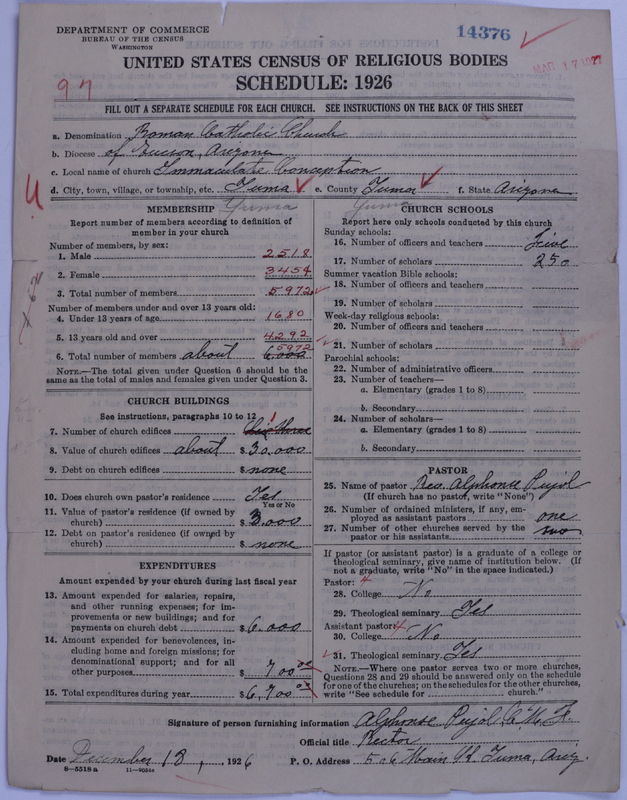 DEPARTMENT OF COMMERCE
BUREAU OF THE CENSUS
WASHINGTON
14376
MAR 17 1927
UNITED STATES CENSUS OF RELIGIOUS BODIES
SCHEDULE: 1926
97
FILL OUT A SEPARATE SCHEDULE FOR EACH CHURCH. SEE INSTRUCTIONS ON THE BACK OF THIS SHEET
a. Denomination Roman Catholic Church
b. Diocese of Tucson, Arizona
c. Local name of church Immaculate Conception
d. City, town, village, or township, etc. Yuma e. County Yuma f. State Arizona
Yuma Yuma
MEMBERSHIP
Report number of members according to definition of
member in your church
Number of members, by sex:
1. Male 2518
2. Female 3454
3. Total number of members 5972
Number of members under and over 13 years old:
4. Under 13 years of age 1680
5. 13 years old and over 4292
6. Total number of members about 6.000 5972
NOTE.—The total given under Question 6 should be
the same as the total of males and females given under Question 3.
CHURCH BUILDINGS
See instructions, paragraphs 10 to 12
7. Number of church edifices 1
8. Value of church edifices about $30.000
9. Debt on church edifices $none
10. Does church own pastor's residence Yes
Yes or No
11. Value of pastor's residence (if owned by
church) $3.000
12. Debt on pastor's residence (if owned by
church) $none
EXPENDITURES
Amount expended by your church during last fiscal year
13. Amount expended for salaries, repairs,
and other running expenses; for im-
provements or new buildings; and for
payments on church debt $6.000
14. Amount expended for benevolences, in-
cluding home and foreign missions; for
denominational support; and for all
other purposes $700 00
15. Total expenditures during year $6,700 00
CHURCH SCHOOLS
Report here only schools conducted by this church
Sunday schools:
16. Number of officers and teachers five
17. Number of scholars 250
Summer vacation Bible schools:
18. Number of officers and teachers
19. Number of scholars
Week-day religious schools:
20. Number of officers and teachers
21. Number of scholars
Parochial schools:
22. Number of administrative officers
23. Number of teachers—
a. Elementary (grades 1 to 8)
b. Secondary
24. Number of scholars—
a. Elementary (grades 1 to 8)
b. Secondary
PASTOR
25. Name of pastor Rev. Alphonse Pujol
(If church has no pastor, write "None")
26. Number of ordained ministers, if any, em-
ployed as assistant pastors one
27. Number of other churches served by the
pastor or his assistants two
If pastor (or assistant pastor) is a graduate of a college or
theological seminary, give name of institution below. (If
not a graduate, write "No" in the space indicated.)
Pastor: 4
28. College No
29. Theological seminary Yes
Assistant pastor: 4
30. College No
31. Theological seminary Yes
NOTE.—Where one pastor serves two or more churches,
Questions 28 and 29 should be answered only on the schedule
for one of the churches; on the schedules for the other churches,
write "See schedule for church."
Signature of person furnishing information Alphonse Pujol C.M.F.
Official title Rector
Date December 18, 1926 P. O. Address 506 Main St. Yuma, Ariz.
8—5518a